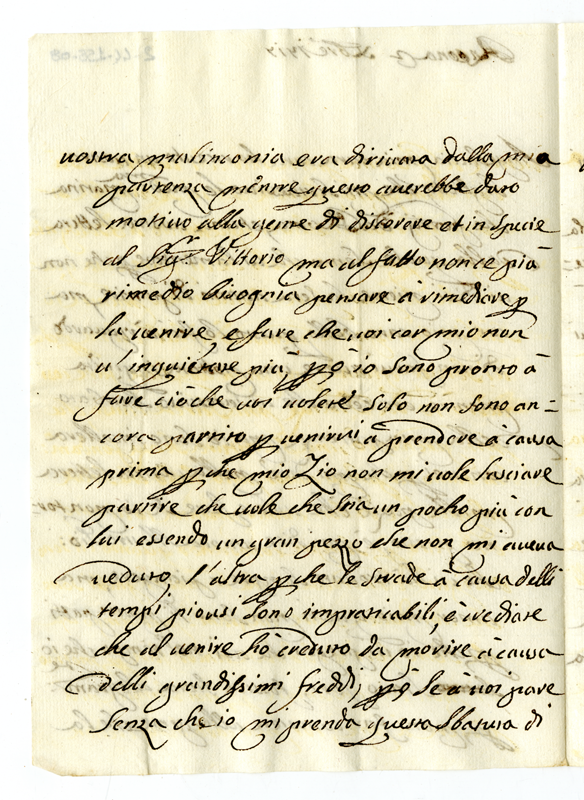 vostra malinconia era dirivata dalla mia
partenza mentre questo averebbe dato
motivo alla gente di discorere et in specie
al Sigr. Vittorio ma al fatto non ce più
rimedio bisognia pensare à rimediare p
la venire, e fare che voi cor mio non
v'inquietate più, pò io sono pronto à
fare ciò che voi volete solo non sono an=
cora partito p venirvi à prendere à causa
prima p che mio Zio non mi vole lasciare
partire che vole che stia un pocho più con
lui essendo un gran pezzo che non mi aveva
veduto, l'altra p che le strade à causa delli
tempi piovosi sono impraticabili, è crediate
che al venire hò creduto da morire à causa
delli grandissimi freddi, pò se à voi pare
senza che io mi prenda questa sbatuta di